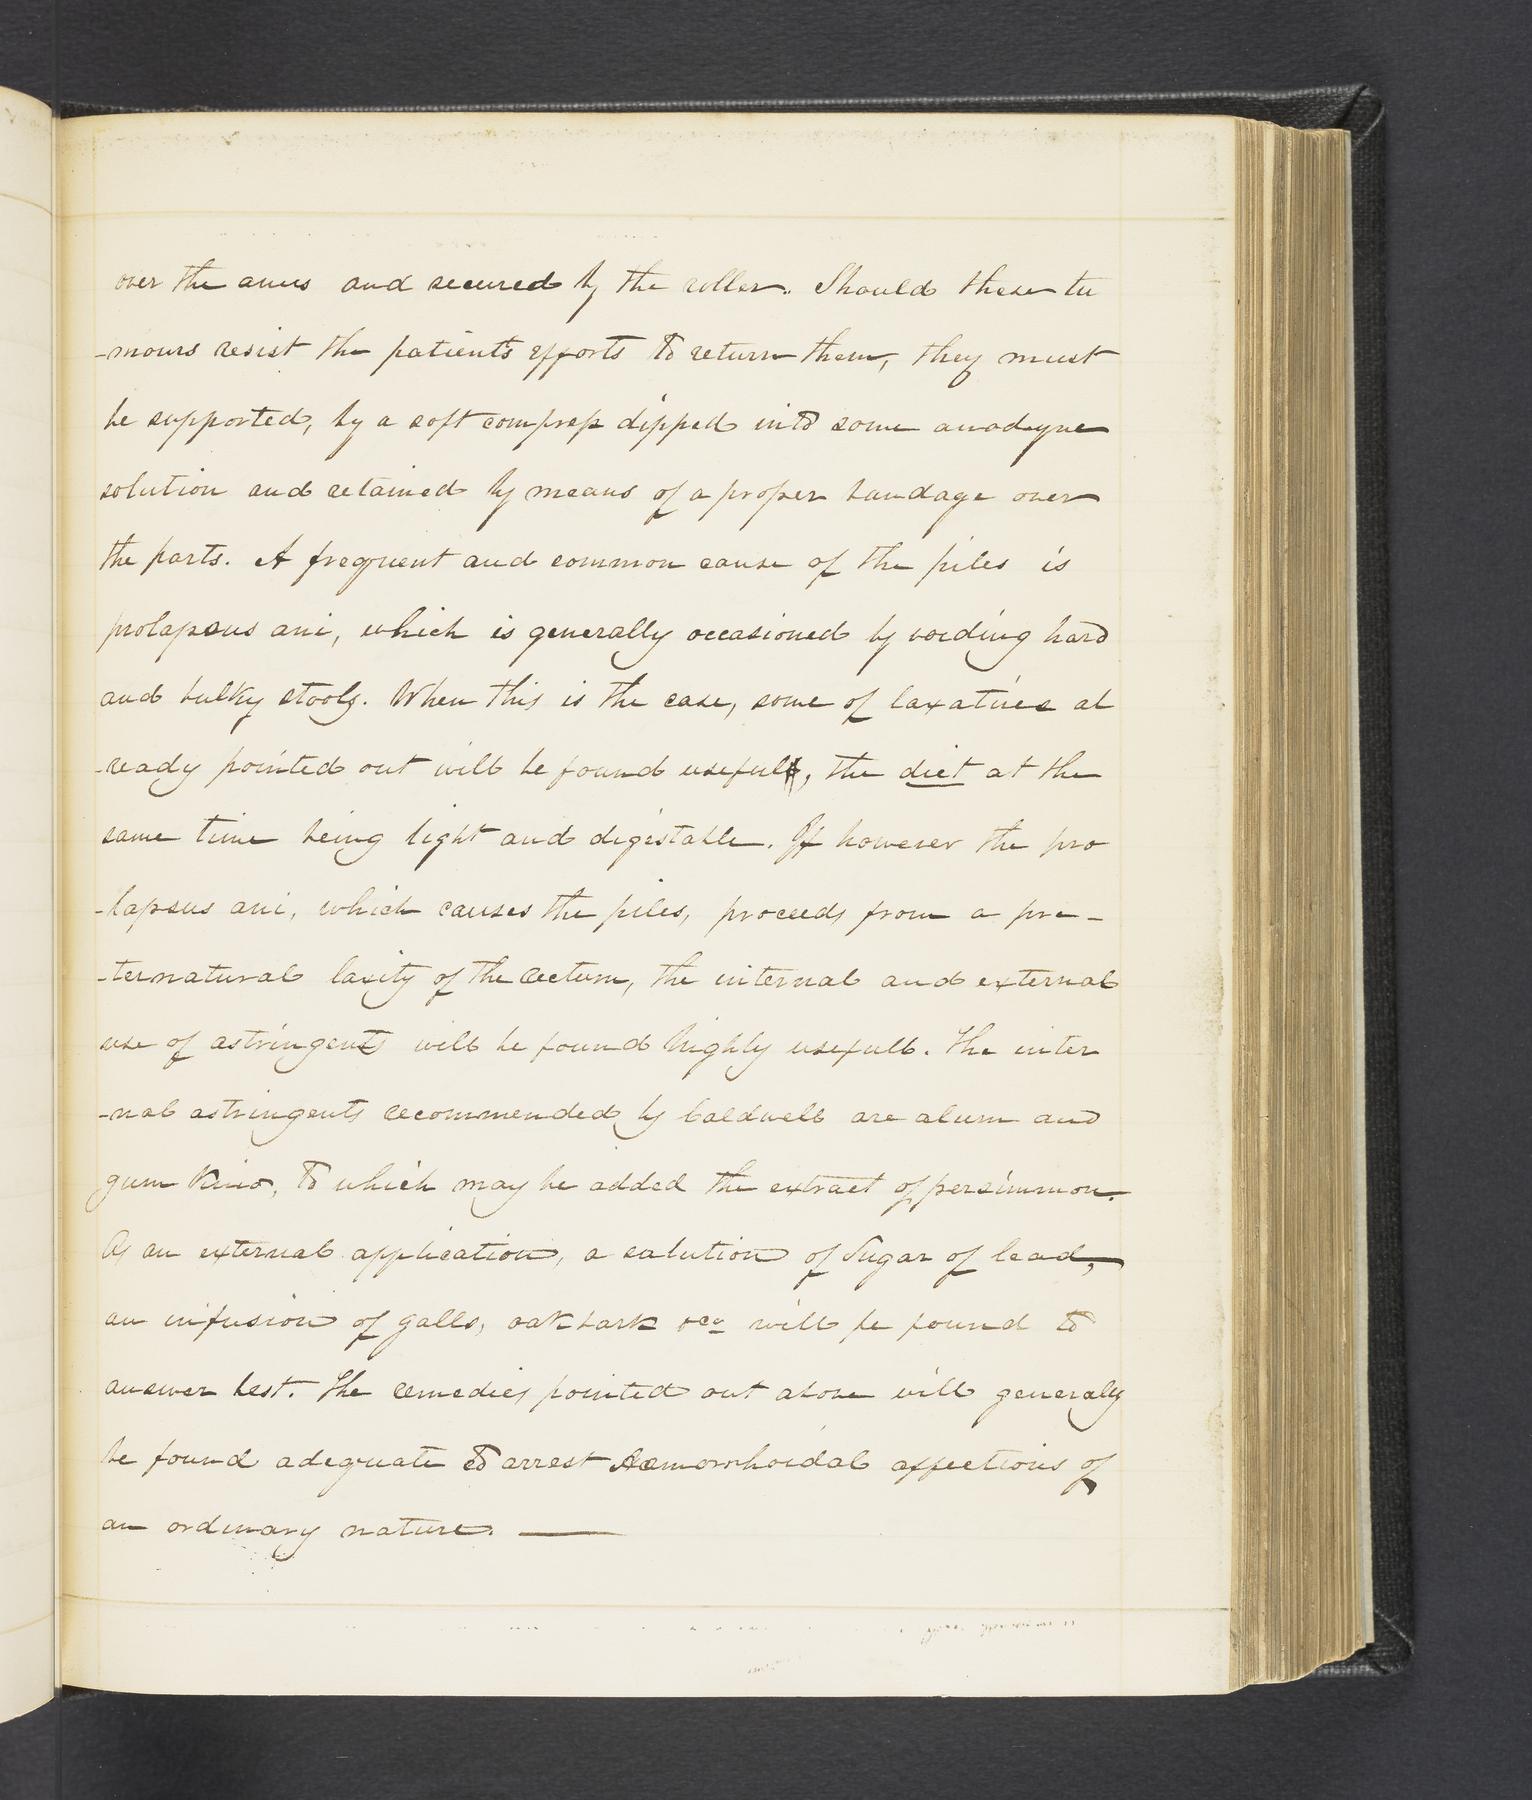 over the anus and secured by the roller. Should these tu
-mours resist the patient's efforts to return them, they must
be supported, by a soft compress dipped into some anodyne
solution and retained by means of a proper bandage over
the parts. A frequent and common cause of the piles is
prolapsus ani, which is generally occasioned by voiding hard
and bulky stools. When this is the case, some of laxatives al
-ready pointed out will be found useful, the diet at the
same time being light and digestable. If however the pro
-lapsus ani, which causes the piles, proceeds from a pre-
-ternatural laxity of the rectum, the internal and external
use of astringents will be found highly usefull. The inter
-nal astringents recommended by Caldwell are alum and
gum Kino, to which may be added the extract of persimmon.
As an external application, a solution of Sugar of lead,
an infusion of galls, oak bark &ca will be found to
answer best. The remedies pointed out above will generaly
be found adequate to arrest Haemorrhoidal affections of
an ordinary nature. —